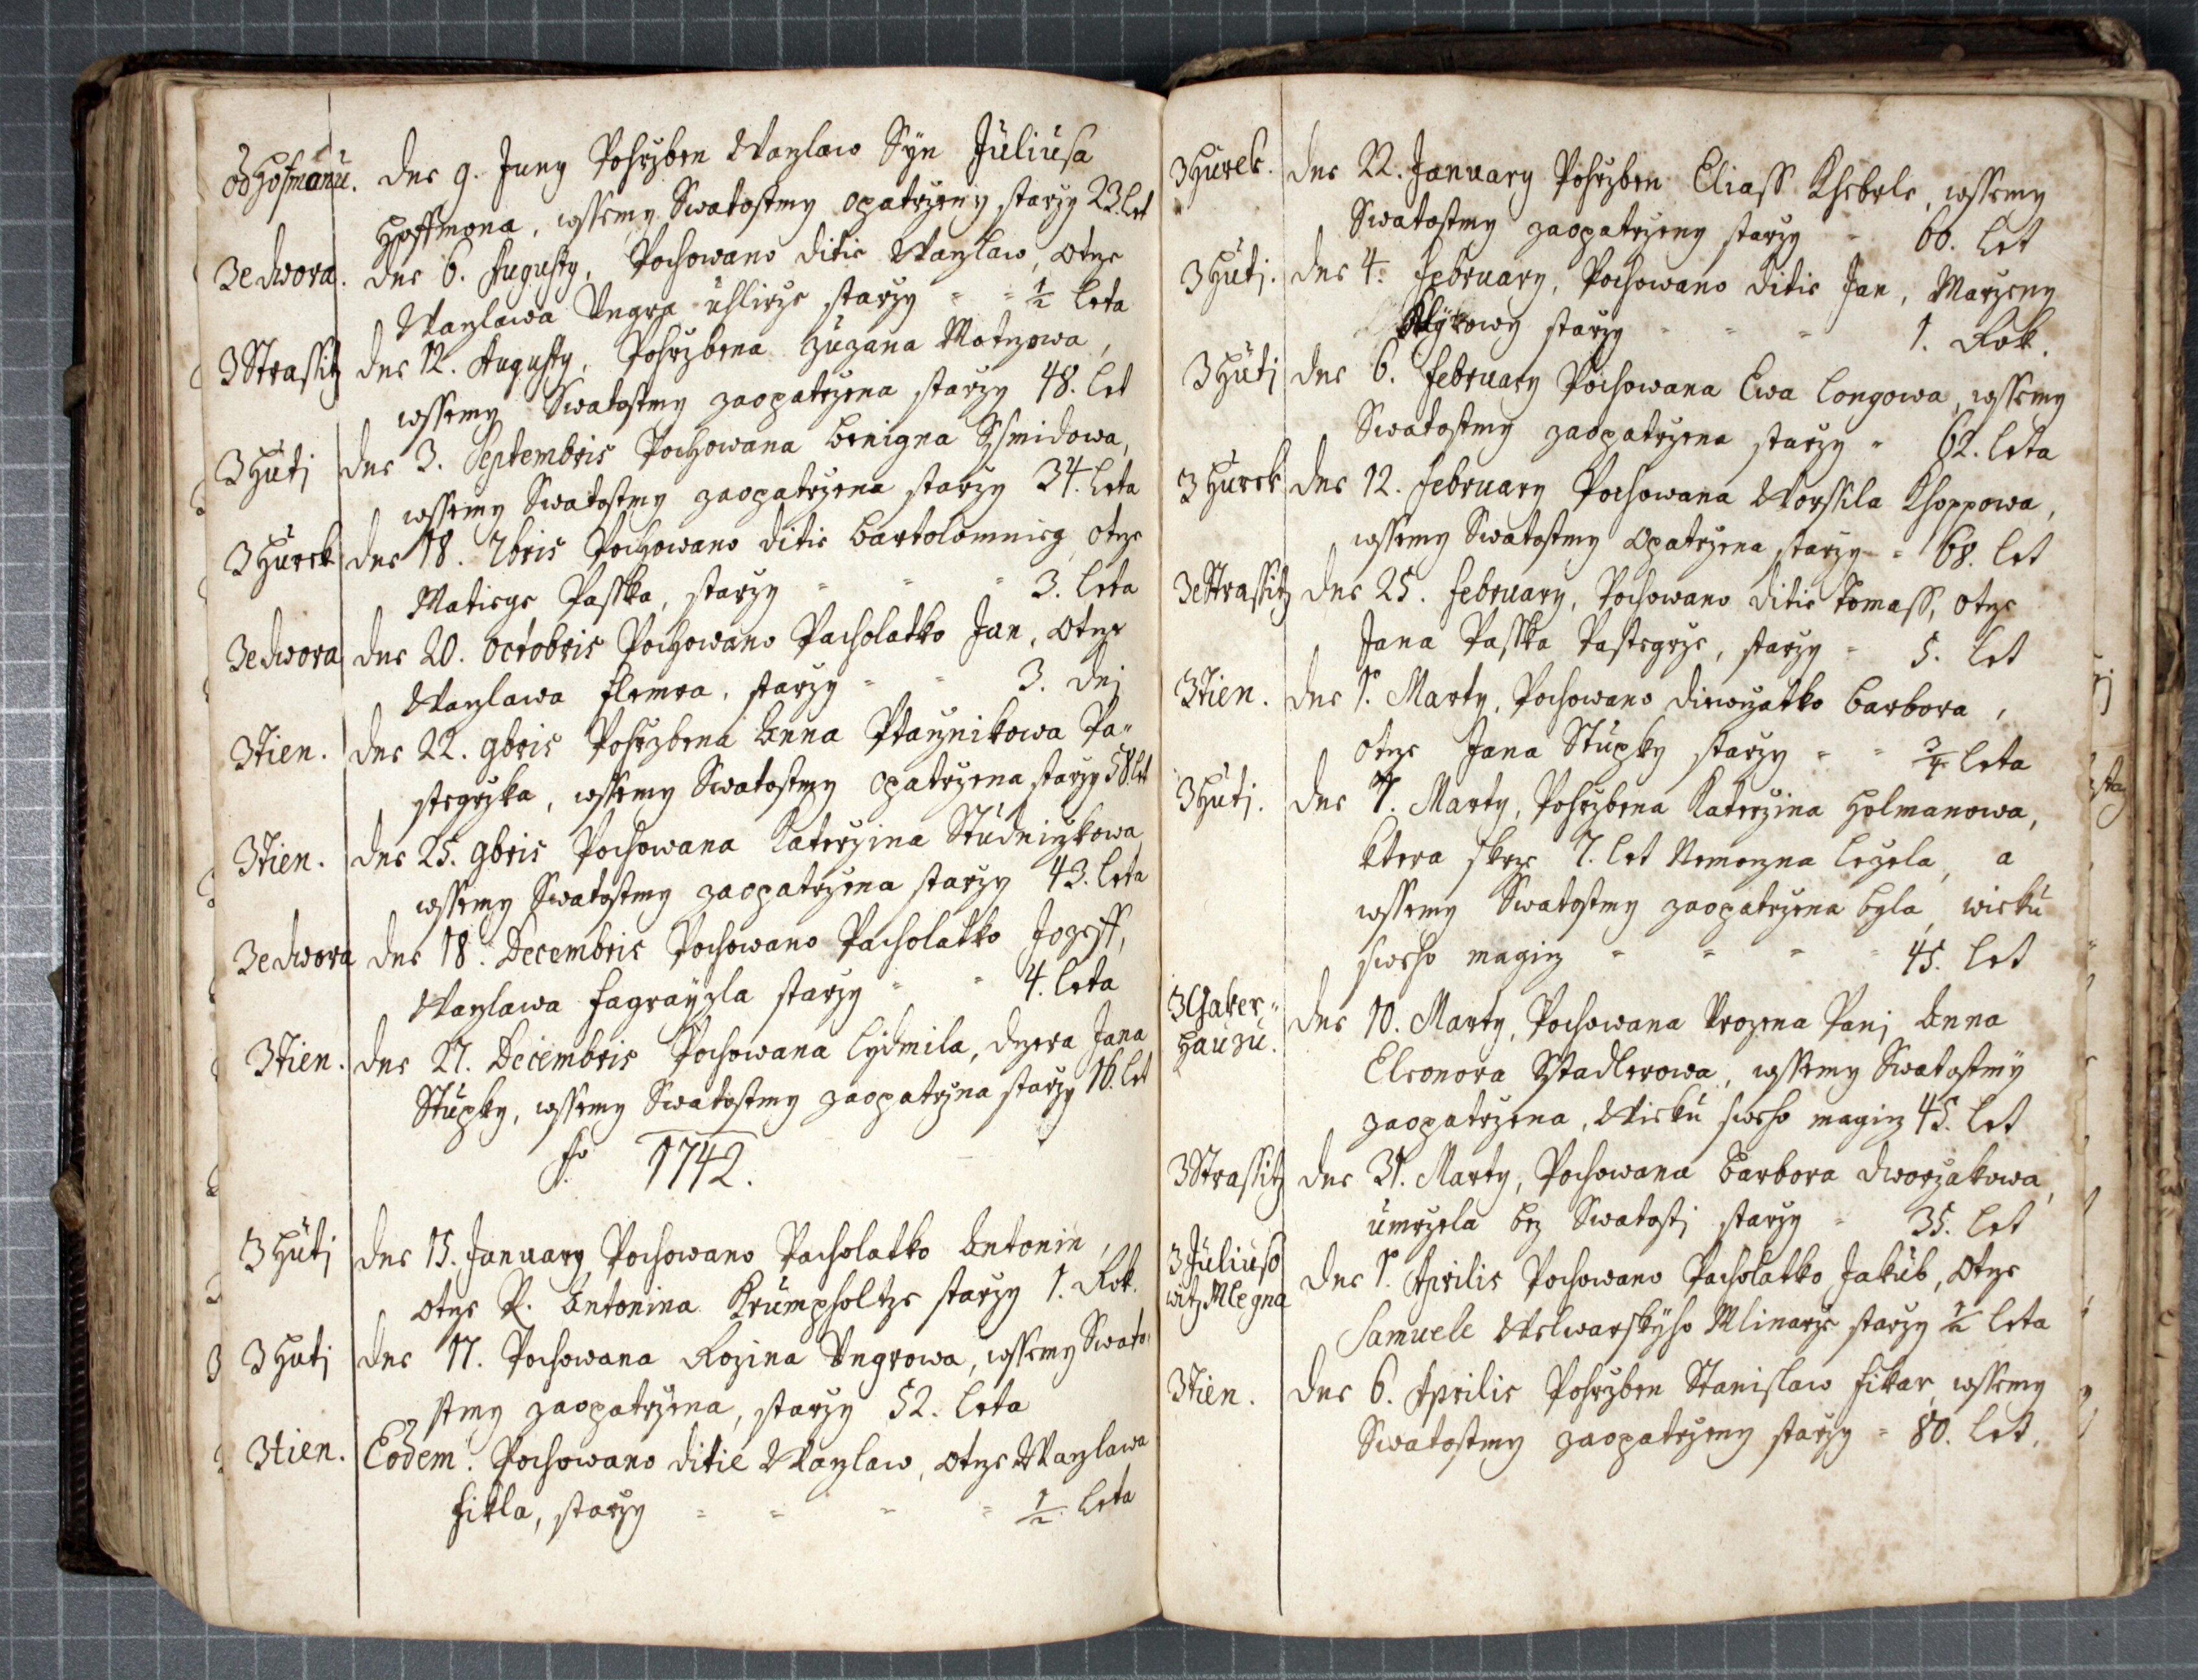 od Hofmanu. dne 9. Juny Pohrzben Wanzlaw Syn Juliusa
Hoffmona, wssemy Swatostmy opatrzeny starzy 23. Let
Ze dwora. dne 6. Augusty, Pochowano ditie Wazlaw, otze
Wazlawa Ungra uhlirze starzy = = 1/2 Leta
Z Strassitz dne 12. Augusty, Pohrzbena Zuzana Motzowa,
wssemy Swatostmy zaopatrzena starzy 48. Let
Z Huti dne 3. Septembris Pochowana Benigna Ssmidowa,
wssemy Swatostmy zaopatrzena starzy 34. Leta
Z Hurek dne 18. 7bris Pochowano ditie Bartolomnieg otze
Matiege Passka, starzy = = = 3. Leta
Ze dwora dne 20. octobris Pochowano Pacholatko Jan, otze
Wazlawa Flemra, starzy = = 3. dni
Z Tien. dne 22. 9bris Pohrzbena Anna Ptaznikowa Pa=
stegrzka, wssemy Swatostmy opatrzena starzy 58. let
Z Tien. dne 25. 9bris Pochowana Katerzina Studnizkowa
wssemy Swatostmy zaopatrzena starzy 43. Leta
Ze dwora dne 18. Decembris Pochowano Pacholatko Jozeff,
Wazlawa Fagrayzla starzy = = 4. Leta
Z Tien. dne 27. Decembris Pochowana Lydmila, dzera Jana
Stupky, wssemy Swatostmy zaopatrzna starzy 16. let
1742.
Z Huti dne 15. January Pochowano Pacholatko Antonin,
otze P. Antonina Krumpholtze starzy 1. Rok.
Z Huti dne 17. Pochowana Rozina Ungrowa, wssemy Swato=
stmy zaopatrzena, starzy 52. Leta
Z Tien. Eodem. Pochowano ditie Wazlaw, otze Wazlawa
Fikla, starzy = = = = 1/2 Leta
Z Hurek. dne 22. January Pohrzben Eliass Khebele, wssemy
Swatostmy zaopatrzeny starzy = 66. Let
Z Huti. dne 4. February, Pochowano ditie Jan, Marzeny
starzy = = = 1. Rok.
Z Huti dne 6. February Pochowana Ewa Longowa, wssemy
Swatostmy zaopatrzena starzy = 62. Leta
Z Hurek dne 12. February Pochowana Worssila Khoppowa,
wssemy Swatostmy opatrzena starzy = 68. Let
Ze Strassitz dne 25. February, Pochowano ditie Tomass, otze
Jana Passka Pastegrze, starzy = 5. Let
Z Tien. dne 1. Marty, Pochowano diewzatko Barbora,
otze Jana Stupky starzy = = 3/4 Leta
Z Huti. dne 7. Marty, Pohrzbena Katerzina Holmanowa,
ktera skrze 7. let Nemozna Lezela, a
wssemy Swatostmy zaopatrzena byla, wieku
sweho magiz = = = = 45. Let
Z Gaker=
Hausu. dne 10. Marty, Pochowana Urozena Pani Anna
Eleonora Stadlerowa, wssemy Swatostmy
zaopatrzena, Wieku sweho magiz 45. Let
Z Strassitz dne 31. Marty, Pochowana Barbora dworzakowa,
umrzela bez Swatosti starzy = 35. Let
Z Juliuso
witz Mlegna dne 1. Aprilis Pochowano Pacholatko Jakub, otze
Samuele Welwarskyho Mlinarze starzy 1/2 Leta
Z Tien. dne 6. Aprilis Pohrzben Stanislaw Fikar, wssemy
Swatostmy zaopatrzeny starzy = 80. Let.